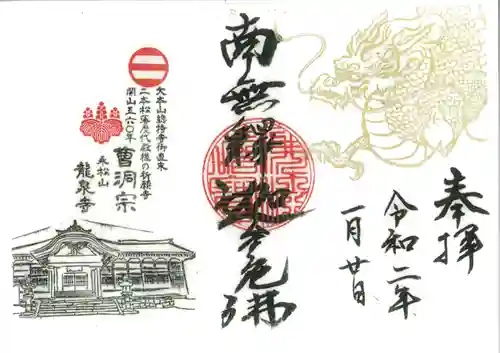 奉拝
令和二年
一月廿日
南無釋迦
大本山總持寺御直末
二本松藩歴代殿様の祈願寺
開山五六〇年
曹洞宗
永松山
龍泉寺